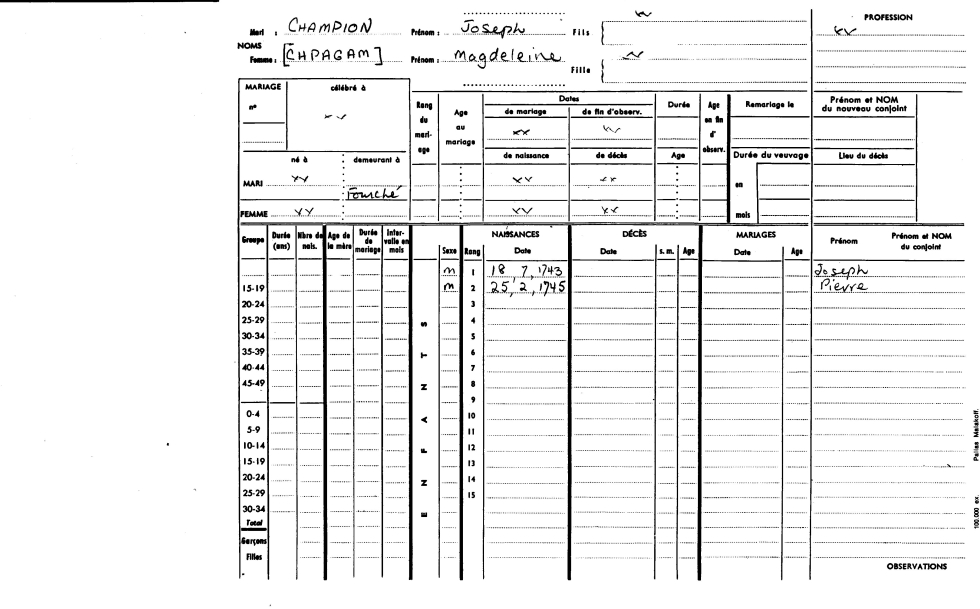 Mari : CHAMPION Prénom : Joseph Fils
PROFESSION
NOMS
Femme : [CHPAGAM] Prénom : Magdeleine Fille
MARIAGE célébré à
n°
Rang du mari-age
Age au mariage
Dates
de mariage de fin d'observ.
Durée
Age en fin d' observ.
Remariage le
Prénom et NOM du nouveau conjoint
né à demeurant à
de naissance de décès Age
Durée du veuvage
Lieu du décès
MARI Fourché
en
FEMME
mois
Groupe Durée (ans) Nbre de nais. Age de la mère Durée de mariage Inter-valle en mois
ENFANTS
Sexe Rang
NAISSANCES Date
DÉCÈS Date s. m. Age
MARIAGES Date Age
Prénom Prénom et NOM du conjoint
m 1 18, 7, 1743 Joseph
15-19 m 2 25, 2, 1745 Pierre
20-24 3
25-29 4
30-34 5
35-39 6
40-44 7
45-49 8
9
0-4 10
5-9 11
10-14 12
15-19 13
20-24 14
25-29 15
30-34
Total
Garçons
Filles
OBSERVATIONS
100.000 ex. Pallas Malakoff.